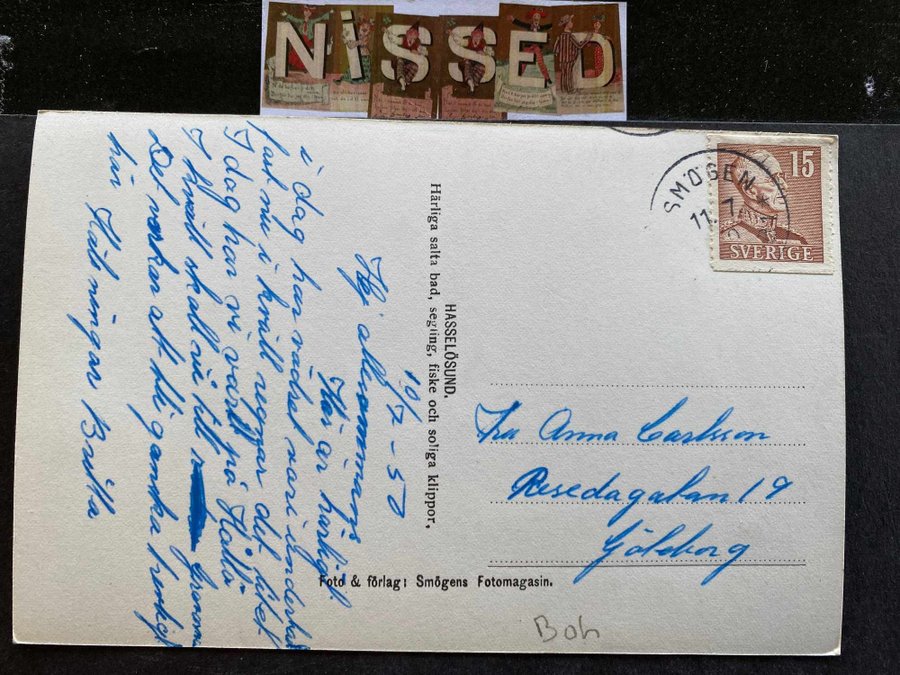 NISSED
SMÖGEN *
11. 7.
15
SVERIGE
HASSELÖSUND.
Härliga salta bad, segling, fiske och soliga klippor.
10/7-50
Hej allesammans
Här är härligt
i dag har vädret varit underbart
fast nu i kväll regnar det litet
I dag har vi varit på Hållö
I kväll skall vi till
Det verkar att bli ganska
här Hälsningar Britta
Fru Anna Carlsson
Resedagatan 19
Göteborg
Foto & förlag: Smögens Fotomagasin.
Boh